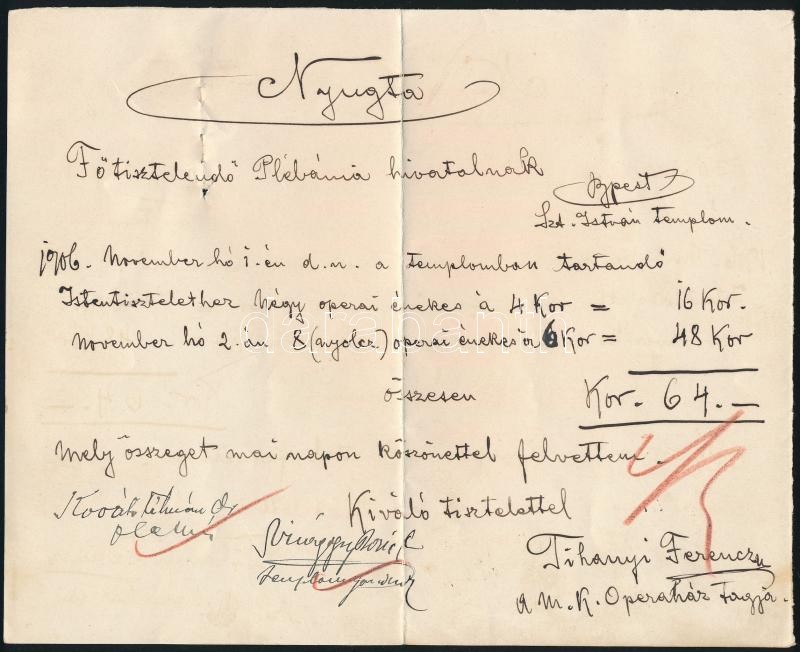 Nyugta
Főtisztelendő Plébánia hivatalnak
Bpest
Szt. István templom.
1906. November hó 1.-én d.n. a templomban tartandó
Istentisztelethez négy operai énekes á 4 Kor = 16 Kor.
november hó 2.-án 8 (nyolcz) operai énekes á 6 Kor = 48 Kor
összesen Kor. 64.—
mely összeget mai napon köszönettel felvettem.
Kiváló tisztelettel
Tihanyi Ferencz
a M. K. Operaház tagja.
Kálmán Dr
darabanth